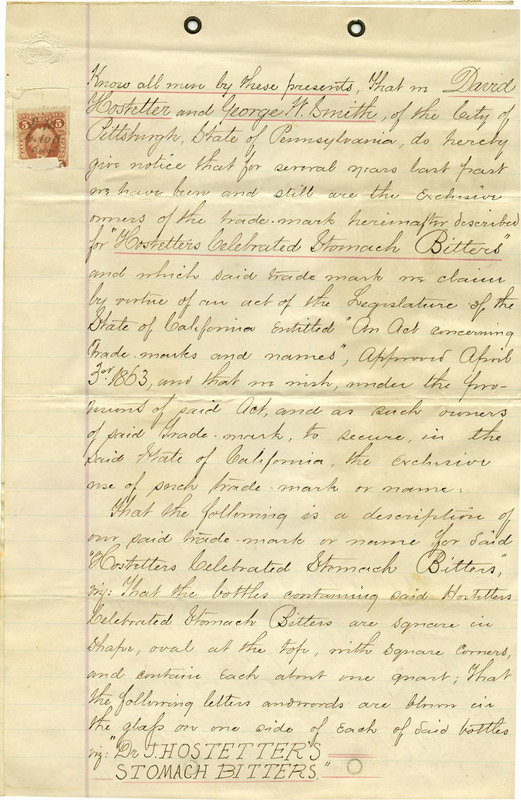 Know all men by these presents, That we David
Hostetter and George W. Smith, of the City of
Pittsburgh, State of Pennsylvania, do hereby
give notice that for several years last past
we have been and still are the exclusive
owners of the trade-mark hereinafter described
for "Hostetters Celebrated Stomach Bitters"
and which said trade mark we claim
by virtue of an act of the Legislature of the
State of California entitled "An Act concerning
trade-marks and names", Approved April
3rd 1863, and that we wish, under the pro-
visions of said Act, and as such owners
of said trade-mark, to secure, in the
said State of California, the exclusive
use of such trade-mark or name:
That the following is a description of
our said trade-mark or name for said
"Hostetters Celebrated Stomach Bitters",
viz: That the bottles containing said Hostetters
Celebrated Stomach Bitters are square in
shape, oval at the top, with square corners,
and contain each about one quart; That
the following letters and words are blown in
the glass on one side of each of said bottles
viz: "Dr J. HOSTETTER'S
STOMACH BITTERS."
5 5